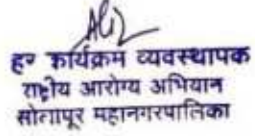 कार्यक्रम व्यवस्थापक
राष्ट्रीय आरोग्य अभियान
सोलापूर महानगरपालिका